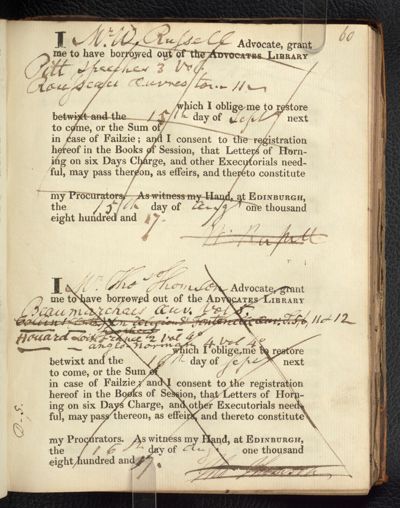 60
I Mr W. Russell Advocate, grant
me to have borrowed out of the ADVOCATES LIBRARY
Pitt Speeches 3 Vol.
Rousseau Œuvres tom 11
which I oblige me to restore
betwixt and the 15th day of Septr next
to come, or the Sum of
in case of Failzie; and I consent to the registration
hereof in the Books of Session, that Letters of Horn-
ing on six Days Charge, and other Executorials need-
ful, may pass thereon, as effeirs, and thereto constitute
my Procurators. As witness my Hand, at EDINBURGH,
the 15th day of Augt one thousand
eight hundred and 17.
W. Russell
I Mr Thos Thomson Advocate, grant
me to have borrowed out of the ADVOCATES LIBRARY
Beaumarchais Œuv. Vol 5
11 & 12
Houard 2 Vol 4o
anglo Norman 4 vol 4o
which I oblige me to restore
betwixt and the 16th day of Septr next
to come, or the Sum of
in case of Failzie; and I consent to the registration
hereof in the Books of Session, that Letters of Horn-
ing on six Days Charge, and other Executorials need-
ful, may pass thereon, as effeirs, and thereto constitute
D. S.
my Procurators. As witness my Hand, at EDINBURGH,
the 16th day of Augt one thousand
eight hundred and 17.
Th Thomson